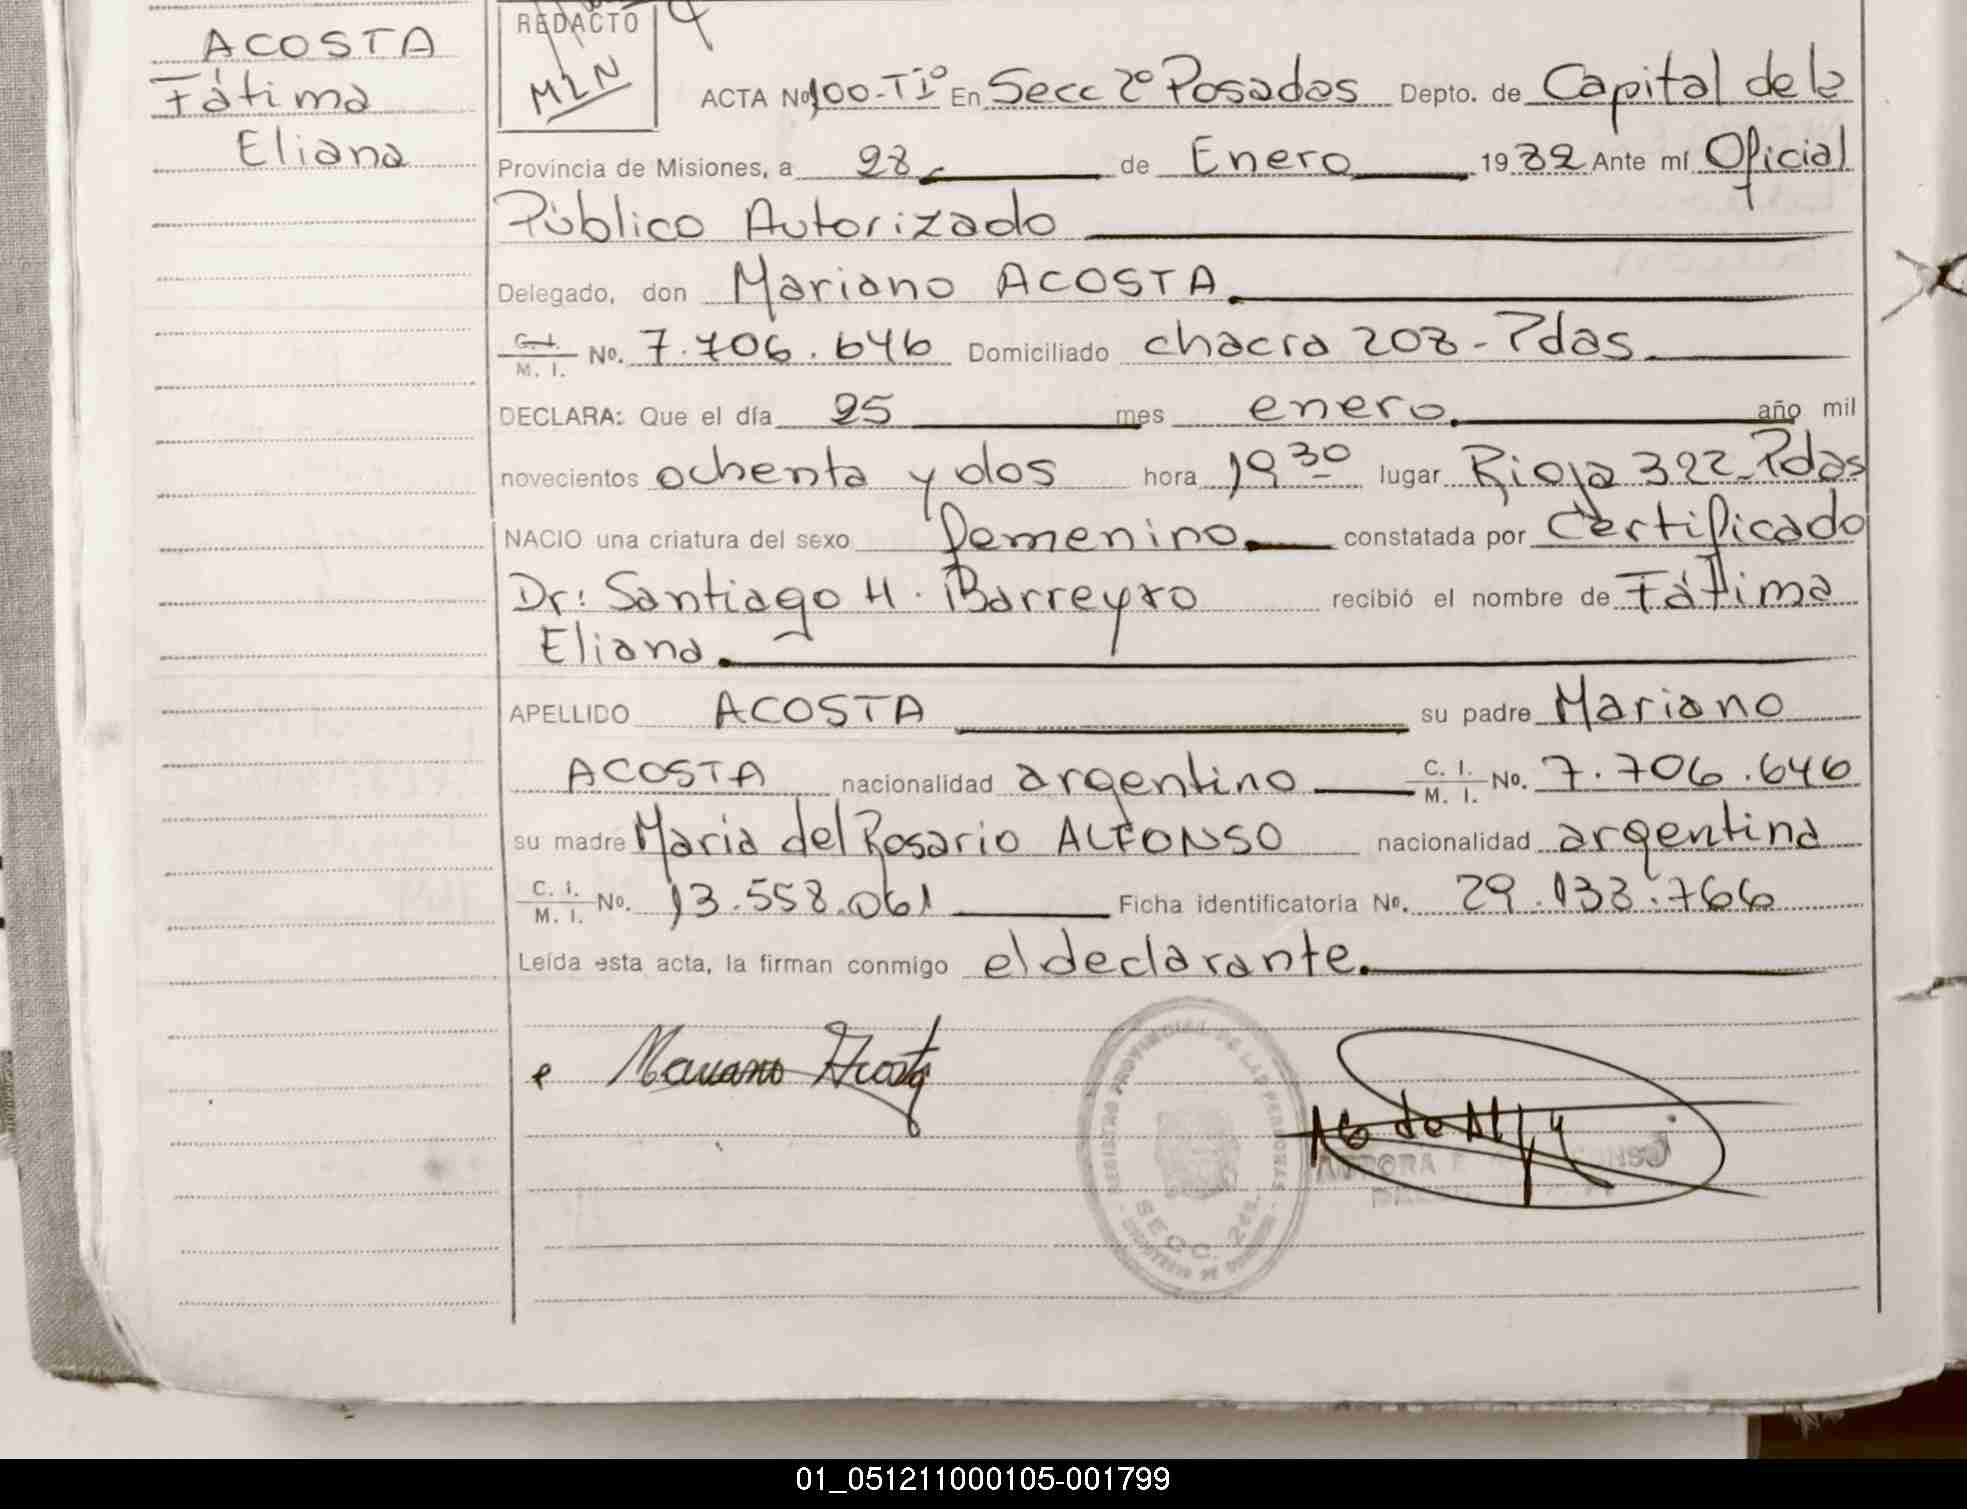 ACOSTA
Fátima
Eliana
REDACTO
MLN
ACTA Nº 100-Tº Iº En Secc 2º Posadas Depto. de Capital de la
Provincia de Misiones, a 28 de Enero 1982 Ante mí Oficial
Público Autorizado
Delegado, don Mariano ACOSTA.
C. I. M. I. No. 7.706.646 Domiciliado chacra 208 - Pdas.
DECLARA: Que el día 25 mes enero. año mil
novecientos ochenta y dos hora 19 30 lugar Rioja 322-Pdas
NACIO una criatura del sexo femenino. constatada por Certificado
Dr: Santiago H. Barreyro recibió el nombre de Fátima
Eliana.
APELLIDO ACOSTA su padre Mariano
ACOSTA nacionalidad argentino C. I. M. I. No. 7.706.646
su madre Maria del Rosario ALFONSO nacionalidad argentina
C. I. M. I. No. 13.558.061 Ficha identificatoria No. 29.138.766
Leída esta acta, la firman conmigo el declarante.
Mariano Acosta
REGISTRO PROVINCIAL DE LAS PERSONAS
SECC. 2da.
01_051211000105-001799